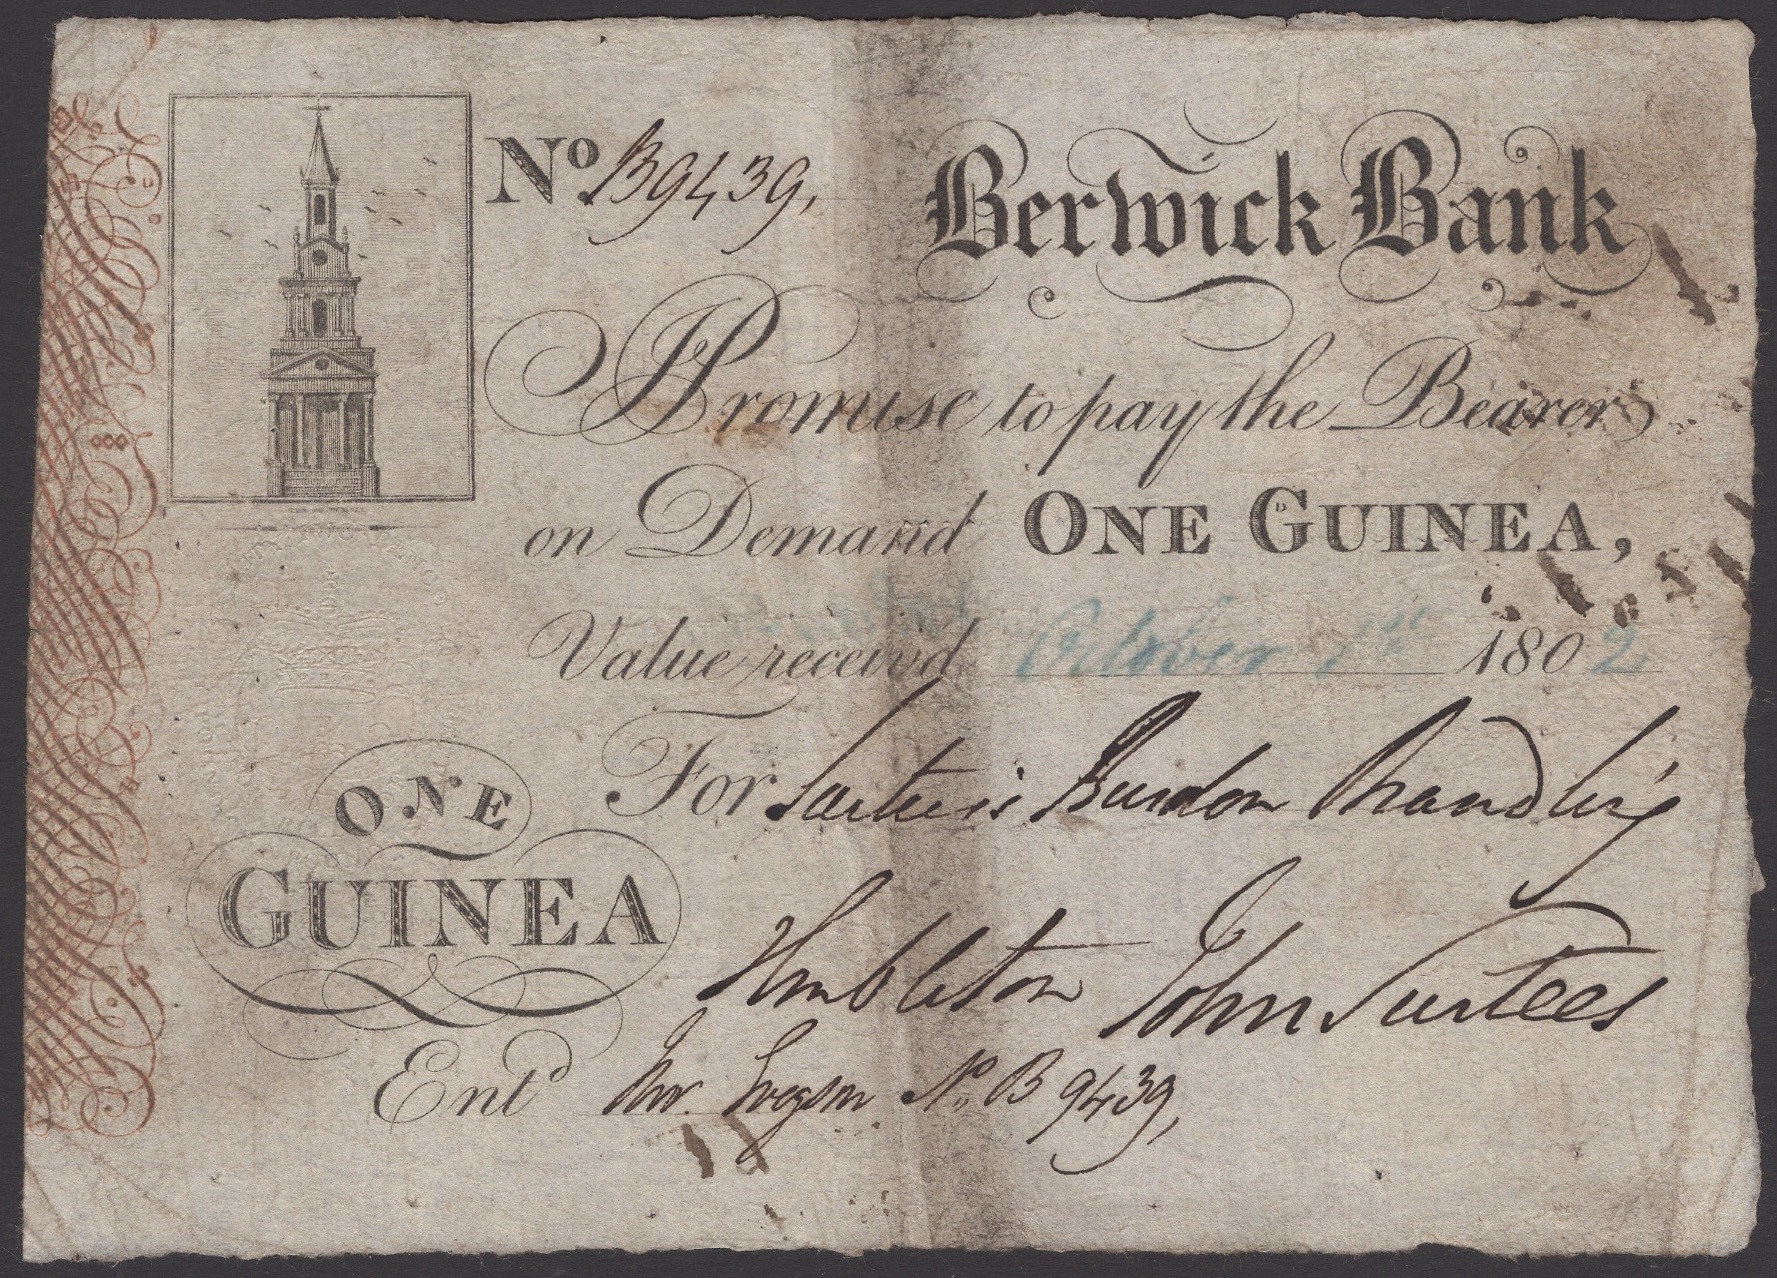 No. B9439,
Berwick Bank
I Promise to pay the Bearer
on Demand ONE GUINEA,
Value receiv'd October 1st 1802
For Surtees Burdon Brandling
Embleton John Surtees
ONE
GUINEA
Entd No. B 9439,